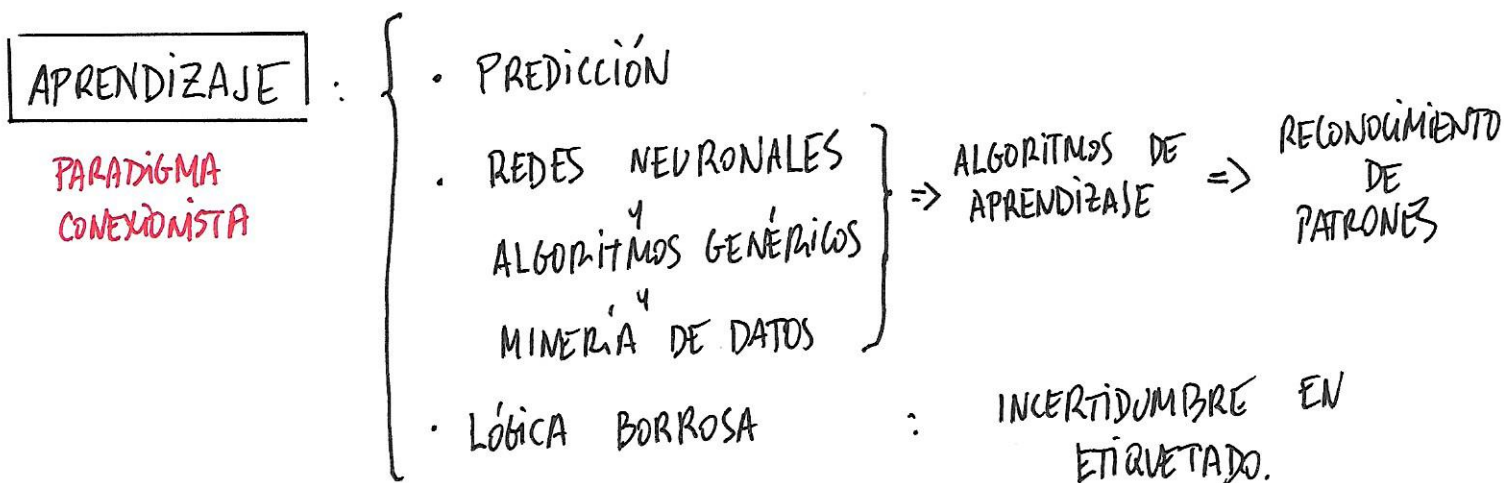 APRENDIZAJE :
PARADIGMA
CONEXIONISTA
· PREDICCIÓN
· REDES NEURONALES
y
ALGORITMOS GENÉRICOS
y
MINERÍA DE DATOS
=> ALGORITMOS DE
APRENDIZAJE
=> RECONOCIMIENTO
DE
PATRONES
· LÓGICA BORROSA : INCERTIDUMBRE EN
ETIQUETADO.